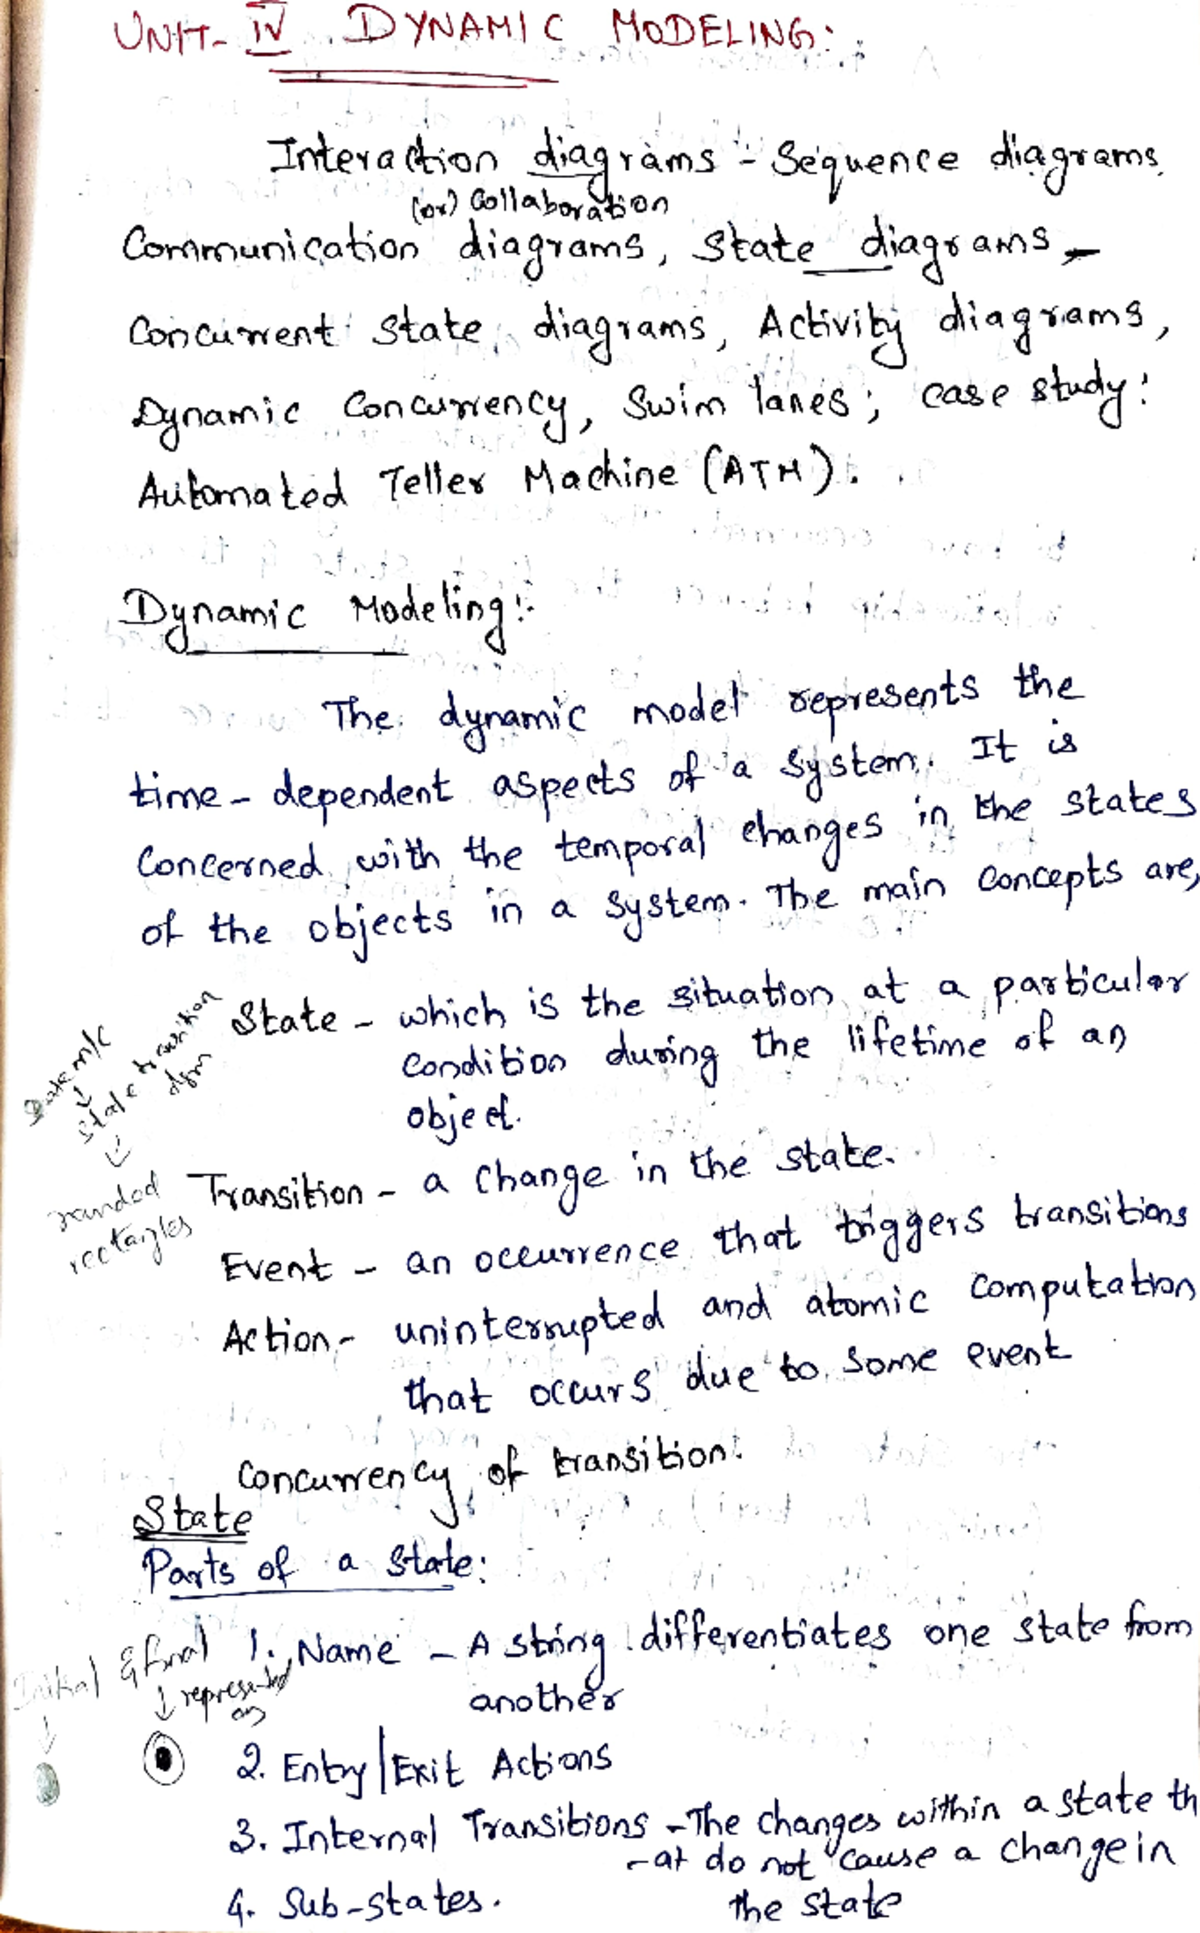 UNIT- IV DYNAMIC MODELING:
Interaction diagrams - Sequence diagrams,
(or) Collaboration
Communication diagrams, State diagrams -
Concurrent State diagrams, Activity diagrams,
Dynamic Concurrency, Swim lanes; case study:
Automated Teller Machine (ATM).
Dynamic Modeling:-
The dynamic model represents the
time - dependent aspects of a system. It is
Concerned with the temporal changes in the states
of the objects in a system. The main concepts are,
State - which is the situation at a particular
condition during the lifetime of an
object.
State m/c
↓
State transition
dgm
↓
rounded
rectangles
Transition - a change in the state.
Event - an occurrence that triggers transitions
Action - uninterrupted and atomic computation
that occurs due to some event
Concurrency of transition.
State
Parts of a state:
Initial & final
↓ represented
as
1. Name - A string differentiates one state from
another
2. Entry/Exit Actions
3. Internal Transitions - The changes within a state th
-at do not cause a change in
the state
4. Sub-states.